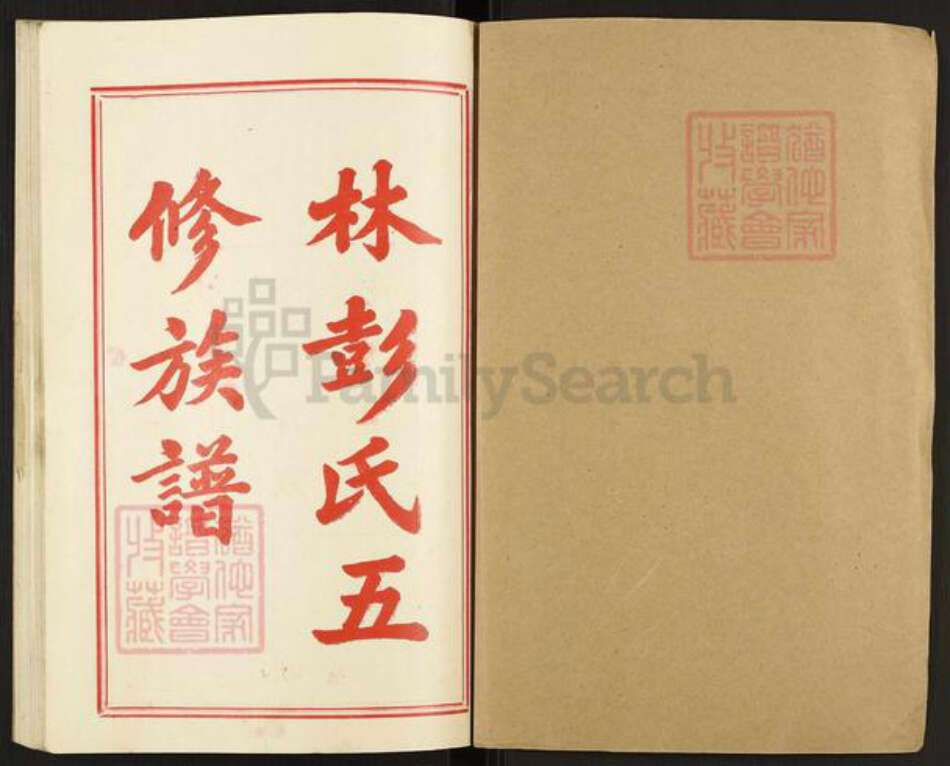 林彭氏五
修族譜
猶他家
譜學會
收藏
猶他家
譜學會
收藏
FamilySearch